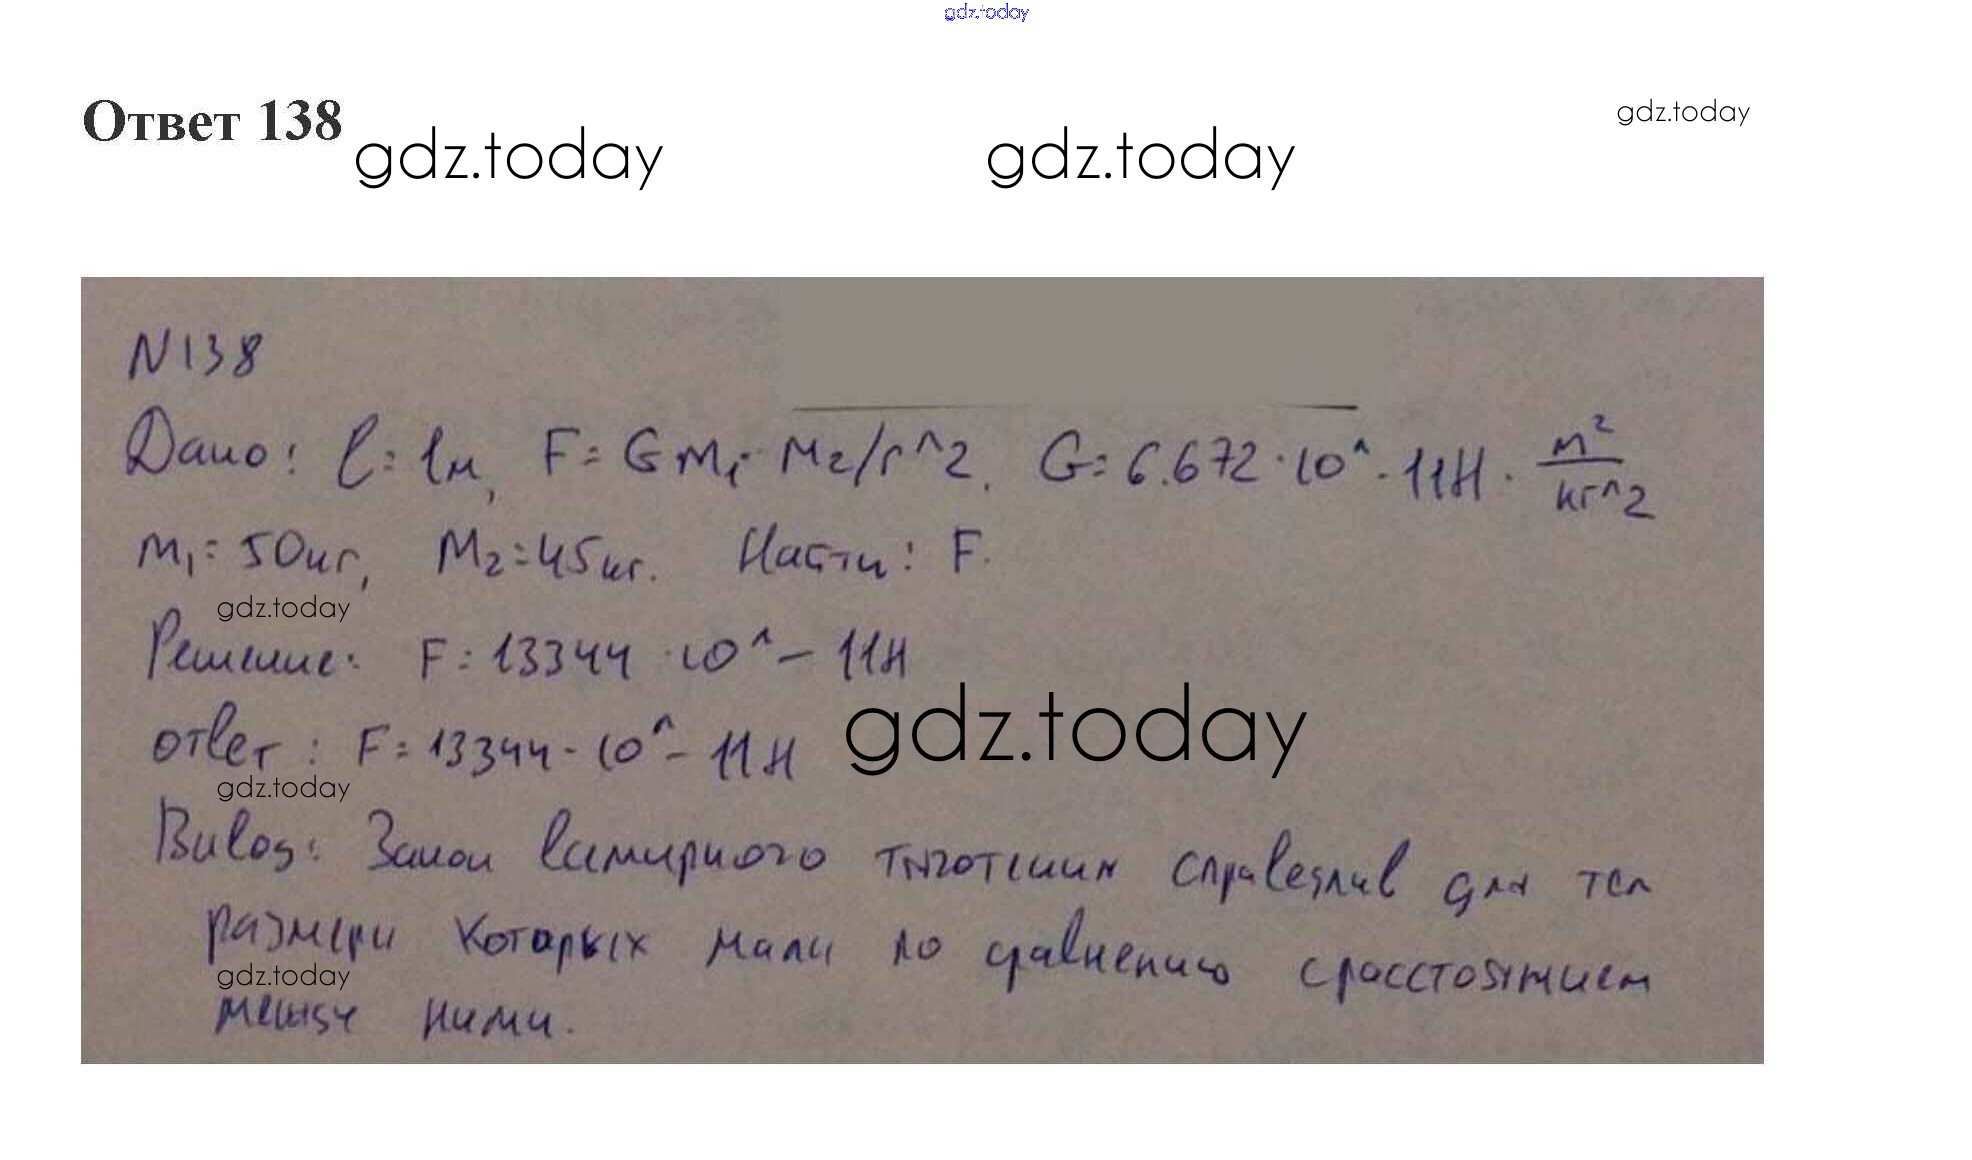 gdz.today
Ответ 138
gdz.today
gdz.today gdz.today
N138
Дано: l=1м, F=Gm₁·M₂/r^2. G=6.672·10^-11Н·м²/кг^2
m₁=50кг, M₂=45кг. Насти: F.
gdz.today
Решение: F=13344·10^-11Н
ответ: F=13344·10^-11Н
gdz.today
gdz.today
Вивод: Закон всемирного тяготении справедлив для тел
размери которых мали по сравнению с расстоянием
gdz.today
между ними.